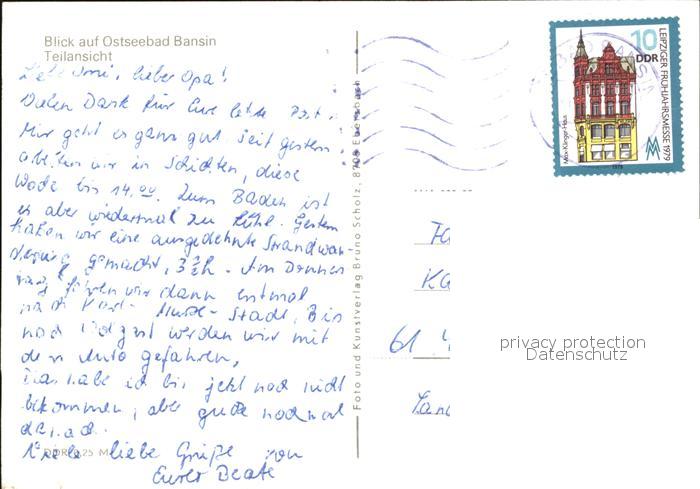 Blick auf Ostseebad Bansin
Teilansicht
Liebe Omi, lieber Opa!
Vielen Dank für Eure letzte Post.
Mir geht es ganz gut. Seit gestern
arbeiten wir in Schichten, diese
Woche bis 14.00. Zum Baden ist
es aber wiedermal zu kühl. Gestern
haben wir eine ausgedehnte Strandwan-
derung gemacht, 3 ½ h. Am Donners
tag fahren wir dann erstmal
nach Karl-Marx-Stadt. Bis
nach Wolgast werden wir mit
dem Auto gefahren.
Das habe ich bis jetzt noch nicht
bekommen, aber nochmal
Viele liebe Grüße von
Eurer Beate
DDR 0,25 M
Foto und Kunstverlag Bruno Scholz, 8706 Ebersbach
10
DDR
LEIPZIGER FRÜHJAHRSMESSE 1979
Max-Klinger-Haus
1979
BANSIN
61
privacy protection
Datenschutz